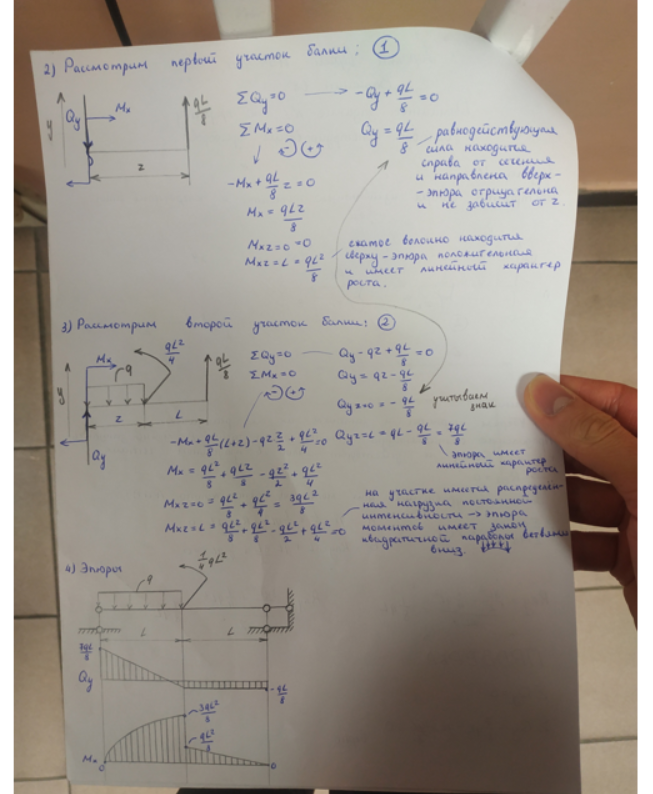 2) Рассмотрим первый участок балки: ①
y
Qy
Mx
qL/8
z
ΣQy=0 → -Qy + qL/8 = 0
ΣMx=0
Qy = qL/8
- +
-Mx + qL/8 z = 0
Mx = qLz/8
Mx z=0 = 0
Mx z=L = qL²/8
равнодействующая
сила находится
справа от сечения
и направлена вверх-
-эпюра отрицательна
и не зависит от z.
сжатое волокно находится
сверху - эпюра положительная
и имеет линейный характер
роста.
3) Рассмотрим второй участок балки: ②
y
Mx
qL²/4
qL/8
q
z
L
Qy
ΣQy=0 — Qy - qz + qL/8 = 0
ΣMx=0
Qy = qz - qL/8
- +
Qy z=0 = - qL/8
учитываем
знак
-Mx + qL/8 (L+z) - qz z/2 + qL²/4 = 0
Qy z=L = qL - qL/8 = 7qL/8
эпюра имеет
линейный характер
роста
Mx = qL²/8 + qLz/8 - qz²/2 + qL²/4
Mx z=0 = qL²/8 + qL²/4 = 3qL²/8
Mx z=L = qL²/8 + qL²/8 - qL²/2 + qL²/4 = 0
на участке имеется распределен-
ная нагрузка постоянной
интенсивности → эпюра
моментов имеет закон
квадратичной параболы ветвями
вниз.
4) Эпюры
q
1/4 qL²
L
L
7qL/8
Qy
- qL/8
3qL²/8
qL²/8
Mx
0
0